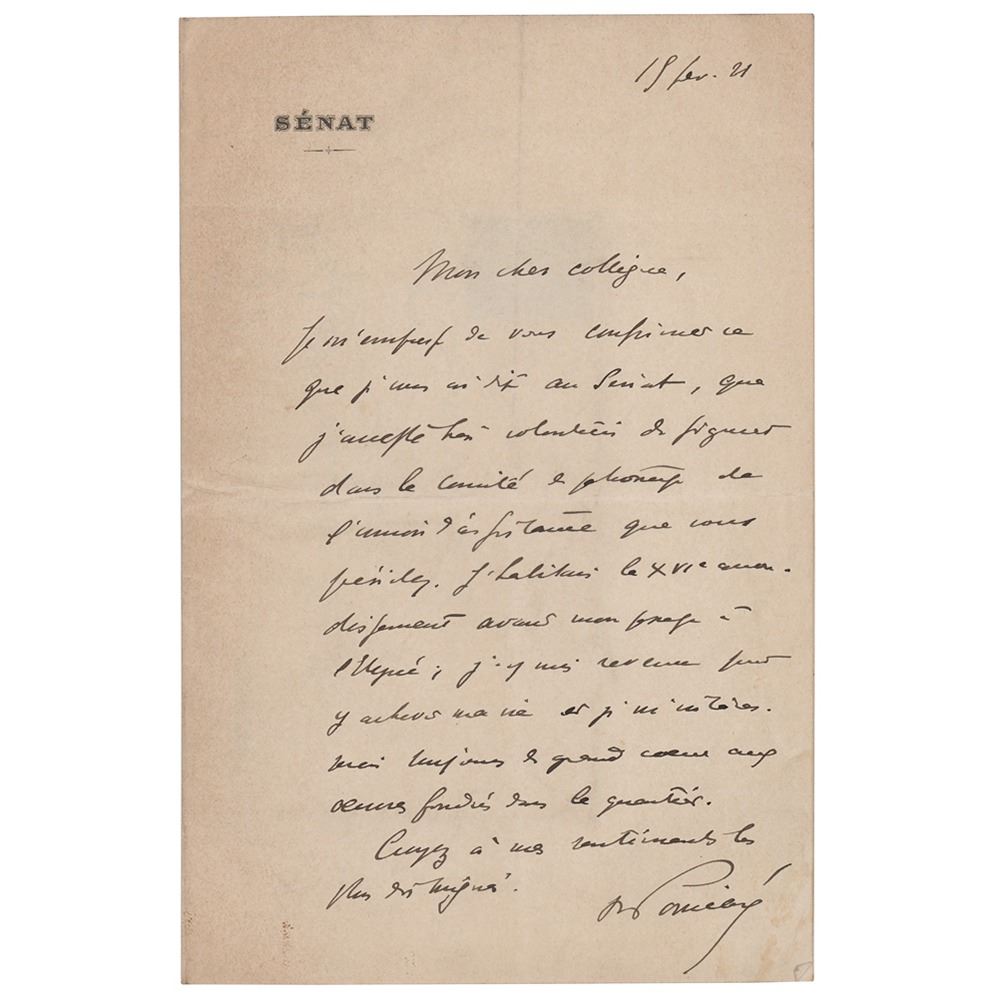 15 fev. 21
SÉNAT
Mon cher collègue,
Je m'empresse de vous confirmer ce
que je vous ai dit au Sénat, que
j'accepte très volontiers de figurer
dans le Comité de patronage de
l'union d'assistance que vous
présidez. J'habitais le XVIe arron-
dissement avant mon passage à
l'Elysée ; j'y suis revenu pour
y achever ma vie et je m'intéres-
serai toujours de grand coeur aux
oeuvres fondées dans le quartier.
Croyez à mes sentiments les
plus distingués.
R Poincaré